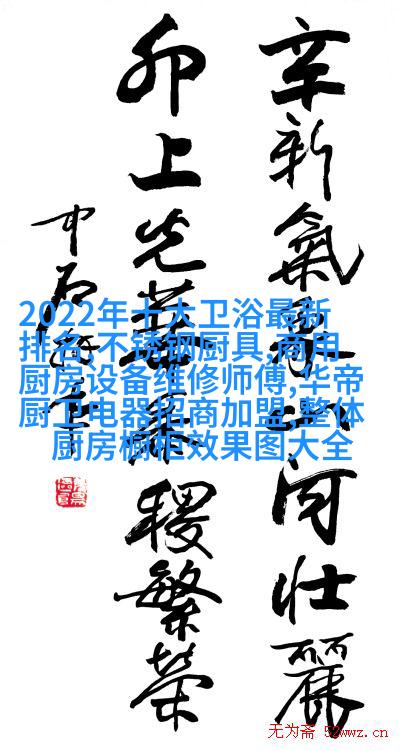 辛新氣象山河壮麗
卯上光華社稷繁荣
中石
2022年十大卫浴最新
排名,不锈钢厨具,商用
厨房设备维修师傅,华帝
厨卫电器招商加盟,整体
厨房橱柜效果图大全
无为斋 52wwz.cn